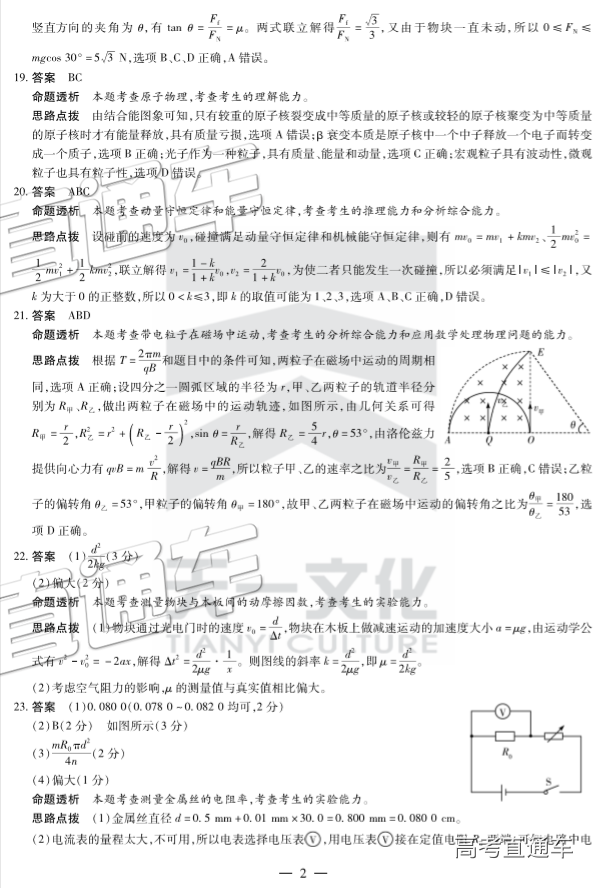 竖直方向的夹角为 θ,有 tan θ = F_f/F_N = μ。两式联立解得 F_f/F_N = √3/3,又由于物块一直未动,所以 0 ≤ F_N ≤
mgcos 30° = 5√3 N,选项 B、C、D 正确,A 错误。
19. 答案 BC
命题透析 本题考查原子物理,考查考生的理解能力。
思路点拨 由结合能图象可知,只有较重的原子核裂变成中等质量的原子核或较轻的原子核聚变为中等质量
的原子核时才有能量释放,具有质量亏损,选项 A 错误;β 衰变本质是原子核中一个中子释放一个电子而转变
成一个质子,选项 B 正确;光子作为一种粒子,具有质量、能量和动量,选项 C 正确;宏观粒子具有波动性,微观
粒子也具有粒子性,选项 D 错误。
20. 答案 ABC
命题透析 本题考查动量守恒定律和能量守恒定律,考查考生的推理能力和分析综合能力。
思路点拨 设碰前的速度为 v₀,碰撞满足动量守恒定律和机械能守恒定律,则有 mv₀ = mv₁ + kmv₂、1/2 mv₀² =
1/2 mv₁² + 1/2 kmv₂²,联立解得 v₁ = (1 - k)/(1 + k) v₀,v₂ = 2/(1 + k) v₀,为使二者只能发生一次碰撞,所以必须满足|v₁|≤|v₂|,又
k 为大于 0 的正整数,所以 0 < k ≤ 3,即 k 的取值可能为 1、2、3,选项 A、B、C 正确,D 错误。
21. 答案 ABD
命题透析 本题考查带电粒子在磁场中运动,考查考生的分析综合能力和应用数学处理物理问题的能力。
思路点拨 根据 T = 2πm/qB 和题目中的条件可知,两粒子在磁场中运动的周期相
同,选项 A 正确;设四分之一圆弧区域的半径为 r,甲、乙两粒子的轨道半径分
别为 R甲、R乙,做出两粒子在磁场中的运动轨迹,如图所示,由几何关系可得
R甲 = r/2,R乙² = r² + (R乙 - r/2)²,sin θ = r/R乙,解得 R乙 = 5/4 r,θ = 53°,由洛伦兹力
E
v甲
θ
A Q O
提供向心力有 qvB = m v²/R,解得 v = qBR/m,所以粒子甲、乙的速率之比为 v甲/v乙 = R甲/R乙 = 2/5,选项 B 正确,C 错误;乙粒
子的偏转角 θ乙 = 53°,甲粒子的偏转角 θ甲 = 180°,故甲、乙两粒子在磁场中运动的偏转角之比为 θ甲/θ乙 = 180/53,选
项 D 正确。
22. 答案 (1) d²/2kg (3 分)
(2)偏大(2 分)
命题透析 本题考查测量物块与木板间的动摩擦因数,考查考生的实验能力。
思路点拨 (1)物块通过光电门时的速度 v₀ = d/Δt,物块在木板上做减速运动的加速度大小 a = μg,由运动学公
式有 v² - v₀² = -2ax,解得 Δt² = d²/2μg · 1/x。则图线的斜率 k = d²/2μg,即 μ = d²/2kg。
(2)考虑空气阻力的影响,μ 的测量值与真实值相比偏大。
23. 答案 (1)0.080 0(0.078 0 ~ 0.082 0 均可,2 分)
(2)B(2 分) 如图所示(3 分)
(3) mR₀πd²/4n (2 分)
(4)偏大(1 分)
V
R₀
S
命题透析 本题考查测量金属丝的电阻率,考查考生的实验能力。
思路点拨 (1)金属丝直径 d = 0.5 mm + 0.01 mm × 30.0 = 0.800 mm = 0.080 0 cm。
(2)电流表的量程太大,不可用,所以电表选择电压表Ⓥ,用电压表Ⓥ接在定值电
— 2 —
直通车
直通车
天一文化
TIANYI CULTURE
高考直通车